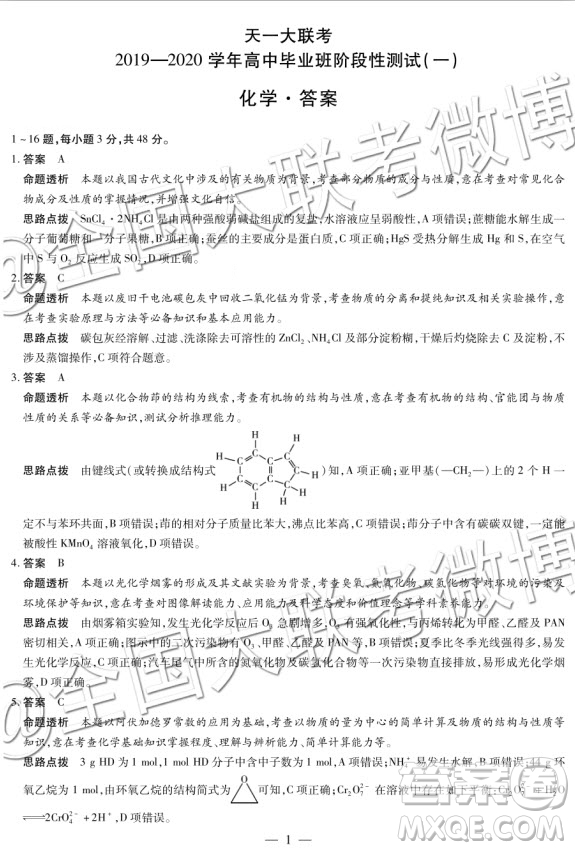 天一大联考
2019—2020 学年高中毕业班阶段性测试(一)
化学·答案
1~16题,每小题3分,共48分。
1. 答案 A
命题透析 本题以我国古代文化中涉及的有关物质为背景,考查部分物质的成分与性质,意在考查对常见化合
物成分及性质的掌握情况,并增强文化自信。
思路点拨 SnCl₄·2NH₄Cl 是由两种强酸弱碱盐组成的复盐,水溶液应呈弱酸性,A项错误;蔗糖能水解生成一
分子葡萄糖和一分子果糖,B项正确;蚕丝的主要成分是蛋白质,C项正确;HgS 受热分解生成 Hg 和 S,在空气
中 S 与 O₂ 反应生成 SO₂,D项正确。
2. 答案 C
命题透析 本题以废旧干电池碳包灰中回收二氧化锰为背景,考查物质的分离和提纯知识及相关实验操作,意
在考查实验原理与方法等必备知识和基本应用能力。
思路点拨 碳包灰经溶解、过滤、洗涤除去可溶性的 ZnCl₂、NH₄Cl 及部分淀粉糊,干燥后灼烧除去 C 及淀粉,不
涉及蒸馏操作,C符合题意。
3. 答案 A
命题透析 本题以化合物茚的结构为线索,考查有机物的结构与性质,意在考查有机物的结构、官能团与物质
性质的关系等必备知识,测试分析推理能力。
思路点拨 由键线式(或转换成结构式 H H H H H H H H C C C C C C C C C )知,A项正确;亚甲基(—CH₂—)上的2个H一
定不与苯环共面,B项错误;茚的相对分子质量比苯大,沸点比苯高,C项错误;茚分子中含有碳碳双键,一定能
被酸性 KMnO₄ 溶液氧化,D项错误。
4. 答案 B
命题透析 本题以光化学烟雾的形成及其文献实验为背景,考查臭氧、氮氧化物、碳氢化物等对环境的污染及
环境保护等知识,意在考查对图像解读能力、应用能力、动态思想、宏观辨识态度和价值理念等学科素养能力。
思路点拨 由烟雾箱实验知,发生光化学烟雾后 O₃ 急剧增多,O₃ 有强氧化性,与丙烯转化为甲醛、乙醛及 PAN
密切相关,A项正确;图示中的二次污染物有 O₃、甲醛、乙醛及 PAN 等,B项错误;夏季比冬季光线强得多,易发
生光化学反应,C项正确;汽车尾气中所含的氮氧化物及碳氢化合物等一次污染物直接排放,易引起光化学烟
雾,D项正确。
5. 答案 C
命题透析 本题以阿伏加德罗常数的应用为基础,考查以物质的量为中心的简单计算及物质结构与性质等知
识,意在考查化学基础知识掌握程度、理解与辨析能力、简单计算能力等。
思路点拨 3 g HD 为1 mol,1 mol HD 分子中含有2 mol中子,A项错误;NH₄⁺ 易发生水解,B项错误;44 g 环
氧乙烷为1 mol,由环氧乙烷的结构简式 O 可知,C项正确;Cr₂O₇²⁻ 在溶液中存在如下平衡:Cr₂O₇²⁻+H₂O
⇌2CrO₄²⁻+2H⁺,D项错误。
— 1 —
@全国大联考微博
@全国大联考微博
答案圈